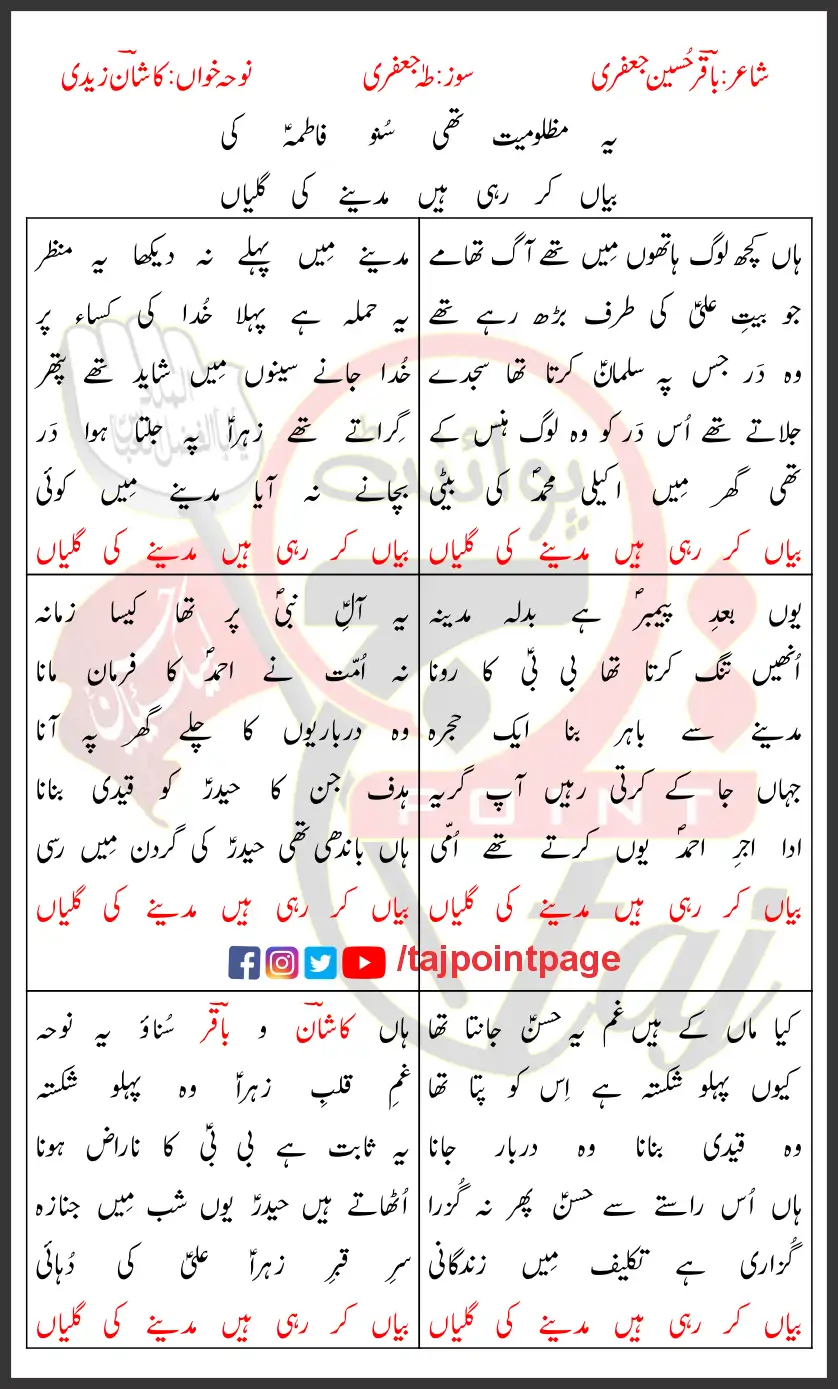 شاعر: باقرؔ حُسین جعفری سوز: طہٰ جعفری نوحہ خواں: کاشانؔ زیدی
یہ مظلومیت تھی سُنو فاطمہؑ کی
بیاں کر رہی ہیں مدینے کی گلیاں
ہاں کچھ لوگ ہاتھوں مِیں تھے آگ تھامے
جو بیتِ علیؑ کی طرف بڑھ رہے تھے
وہ دَر جس پہ سلمانؑ کرتا تھا سجدے
جلاتے تھے اُس دَر کو وہ لوگ ہنس کے
تھی گھر مِیں اکیلی محمدؐ کی بیٹی
بیاں کر رہی ہیں مدینے کی گلیاں
مدینے مِیں پہلے نہ دیکھا یہ منظر
یہ حملہ ہے پہلا خُدا کی کساء پر
خُدا جانے سینوں مِیں شاید تھے پتھر
گِراتے تھے زہراؑ پہ جلتا ہوا دَر
بچانے نہ آیا مدینے مِیں کوئی
بیاں کر رہی ہیں مدینے کی گلیاں
یوں بعدِ پیمبرؐ ہے بدلہ مدینہ
اُنھیں تنگ کرتا تھا بی بیؑ کا رونا
مدینے سے باہر بنا ایک حجرہ
جہاں جا کے کرتی رہیں آپ گریہ
ادا اجرِ احمدؐ یوں کرتے تھے اُمّی
بیاں کر رہی ہیں مدینے کی گلیاں
یہ آلِؑ نبیؐ پر تھا کیسا زمانہ
نہ اُمّت نے احمدؐ کا فرمان مانا
وہ درباریوں کا چلے گھر پہ آنا
ہدف جن کا حیدرؑ کو قیدی بنانا
ہاں باندھی تھی حیدرؑ کی گردن مِیں رسی
بیاں کر رہی ہیں مدینے کی گلیاں
/tajpointpage
کیا ماں کے ہیں غم یہ حسنؑ جانتا تھا
کیوں پہلو شکستہ ہے اِس کو پتا تھا
وہ قیدی بنانا وہ دربار جانا
ہاں اُس راستے سے حسنؑ پھر نہ گُزرا
گُزاری ہے تکلیف مِیں زندگانی
بیاں کر رہی ہیں مدینے کی گلیاں
ہاں کاشانؔ و باقرؔ سُناؤ یہ نوحہ
غمِ قلبِ زہراؑ وہ پہلو شکستہ
یہ ثابت ہے بی بیؑ کا ناراض ہونا
اُٹھاتے ہیں حیدرؑ یوں شب مِیں جنازہ
سرِ قبرِ زہراؑ علیؑ کی دُہائی
بیاں کر رہی ہیں مدینے کی گلیاں
پوائنٹ
POINT
taj